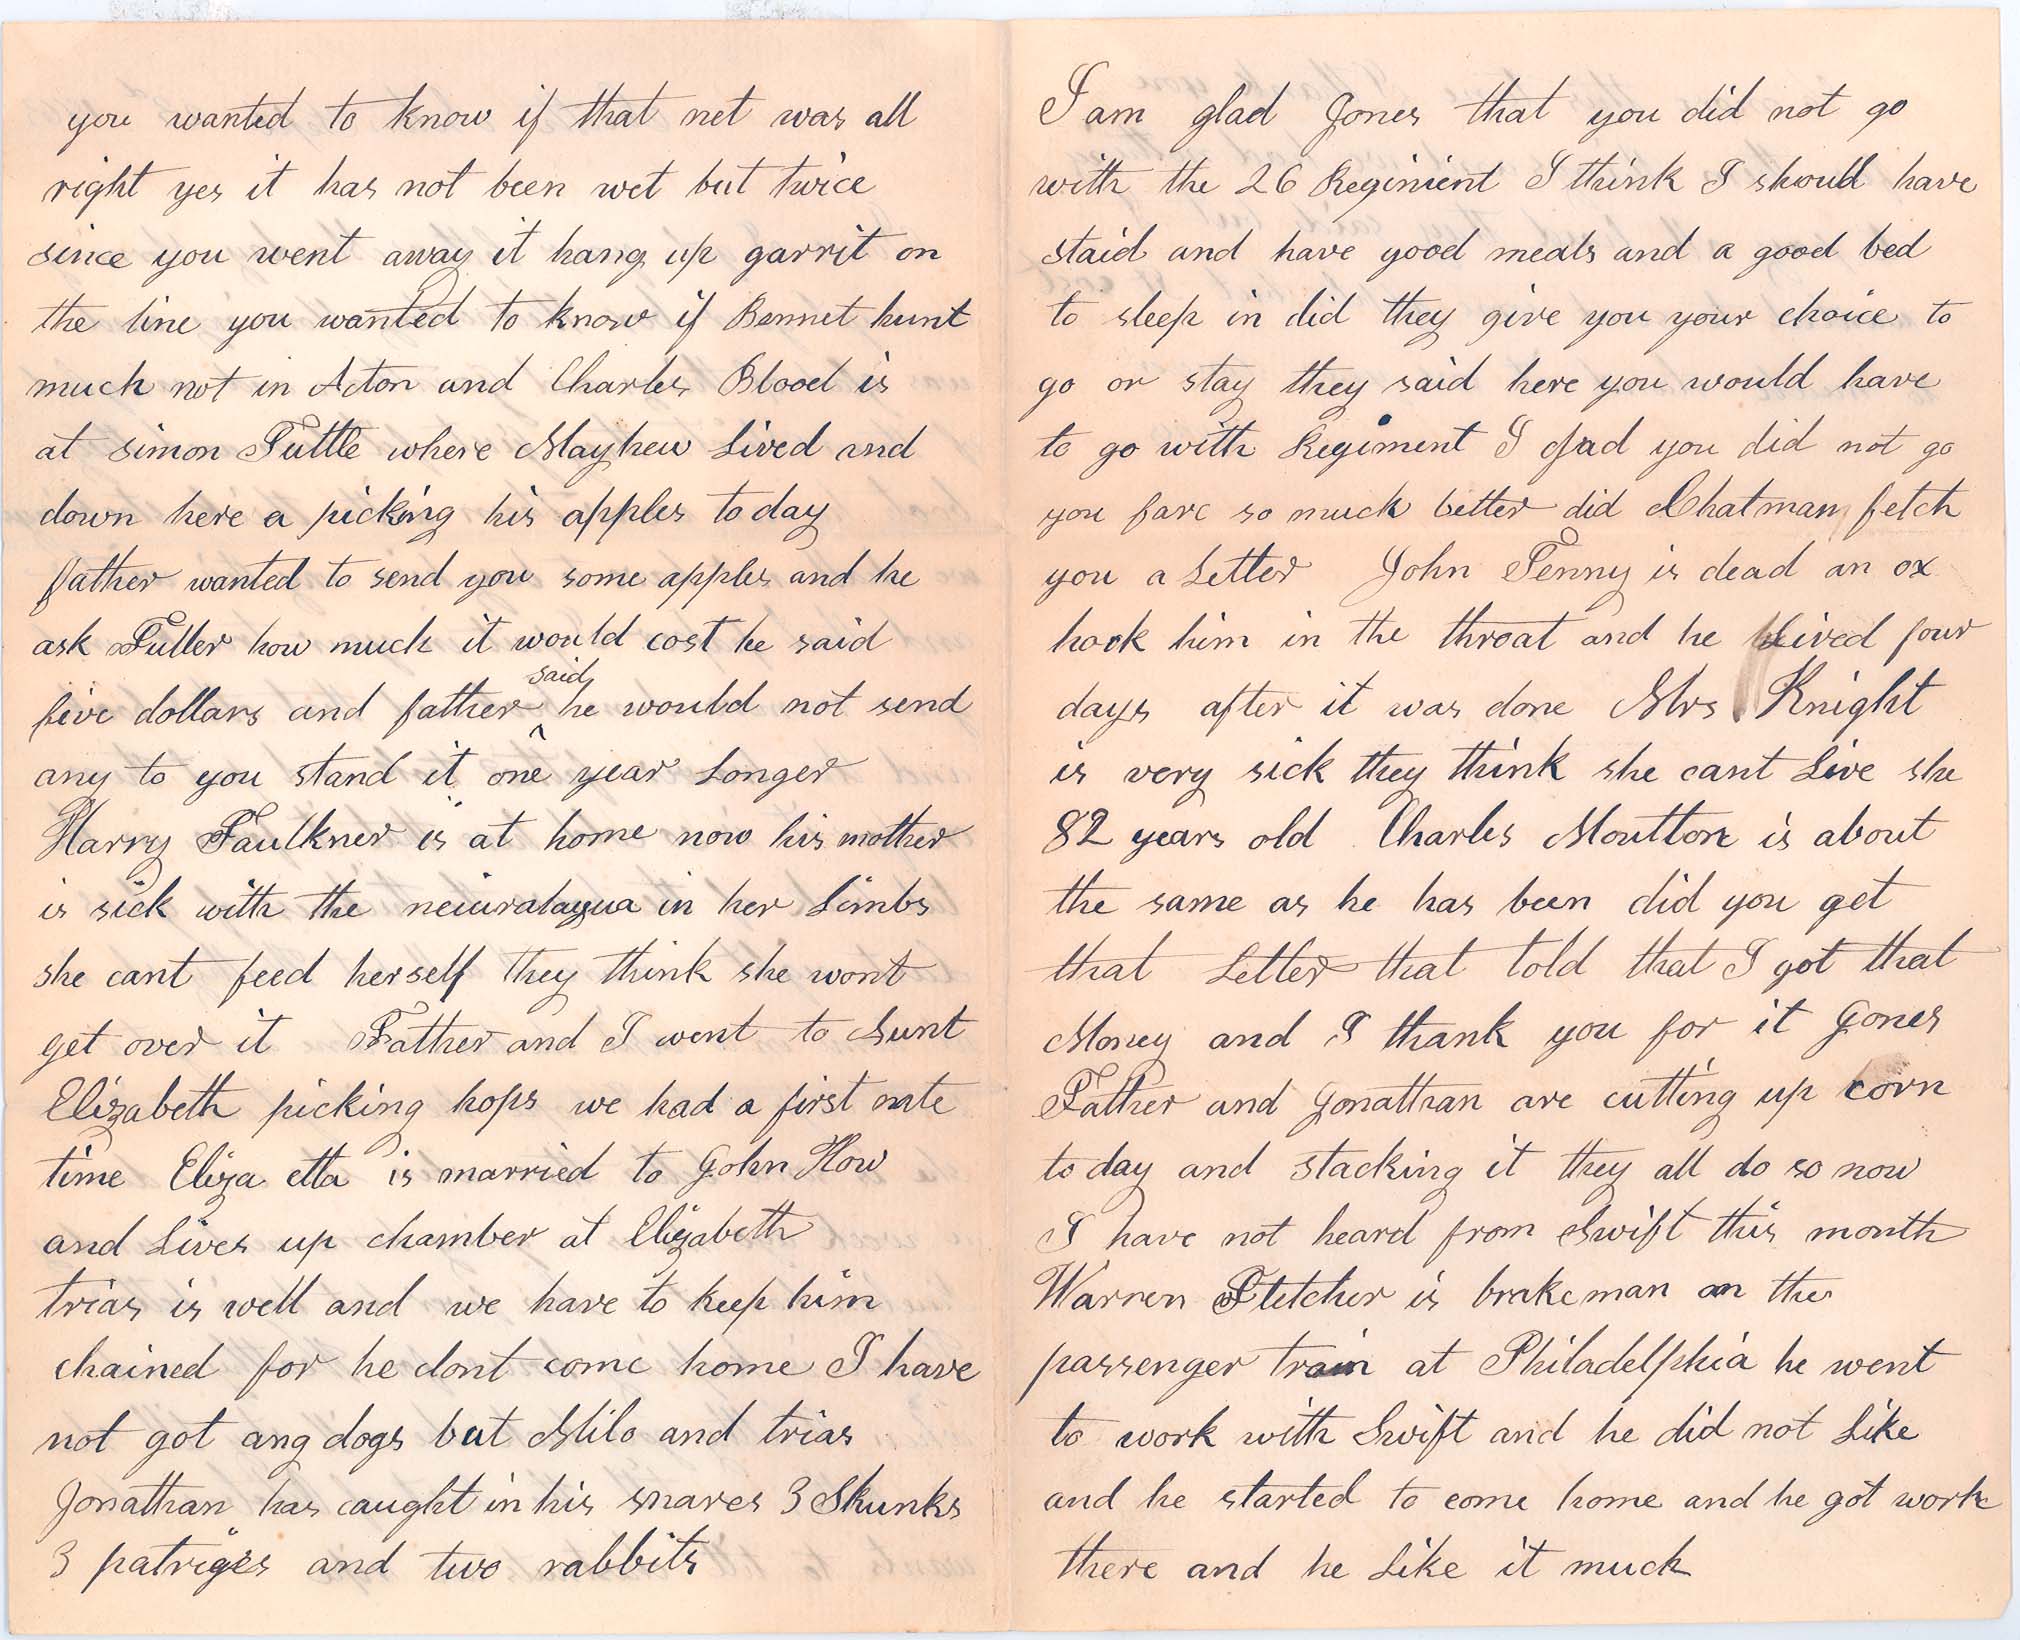 you wanted to know if that net was all
right yes it has not been wet but twice
since you went away it hang up garrit on
the line you wanted to know if Bennet hunt
much not in Acton and Charles Blood is
at simon Tuttle where Mayhew Lived and
down here a picking his apples to day
father wanted to send you some apples and he
ask Fuller how much it would cost he said
five dollars and father said he would not send
any to you stand it one year Longer
Harry Faulkner is at home now his mother
is sick with the neiuralagua in her Limbs
she cant feed herself they think she wont
get over it Father and I went to Aunt
Elizabeth picking hops we had a first rate
time Eliza etta is married to John How
and Lives up chamber at Elizabeth
trias is well and we have to keep him
chained for he dont come home I have
not got any dogs but Milo and trias
Jonathan has caught in his snares 3 Skunks
3 patriges and two rabbits
I am glad Jones that you did not go
with the 26 Reginient I think I should have
staid and have good meals and a good bed
to sleep in did they give you your choice to
go or stay they said here you would have
to go with Regiment I glad you did not go
you fare so much better did Chatman fetch
you a Letter John Tenny is dead an ox
hook him in the throat and he Lived four
days after it was done Mrs Knight
is very sick they think she cant Live she
82 years old Charles Moutton is about
the same as he has been did you get
that Letter that told that I got that
Money and I thank you for it Jones
Father and Jonathan are cutting up corn
to day and stacking it they all do so now
I have not heard from Swift this month
Warren Fletcher is brakeman on the
passenger train at Philadelphia he went
to work with Swift and he did not Like
and he started to come home and he got work
there and he Like it much